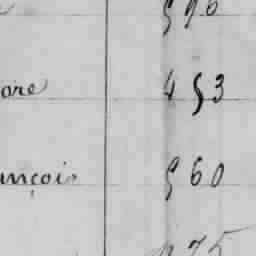 596
ore 453
nçois 560
75